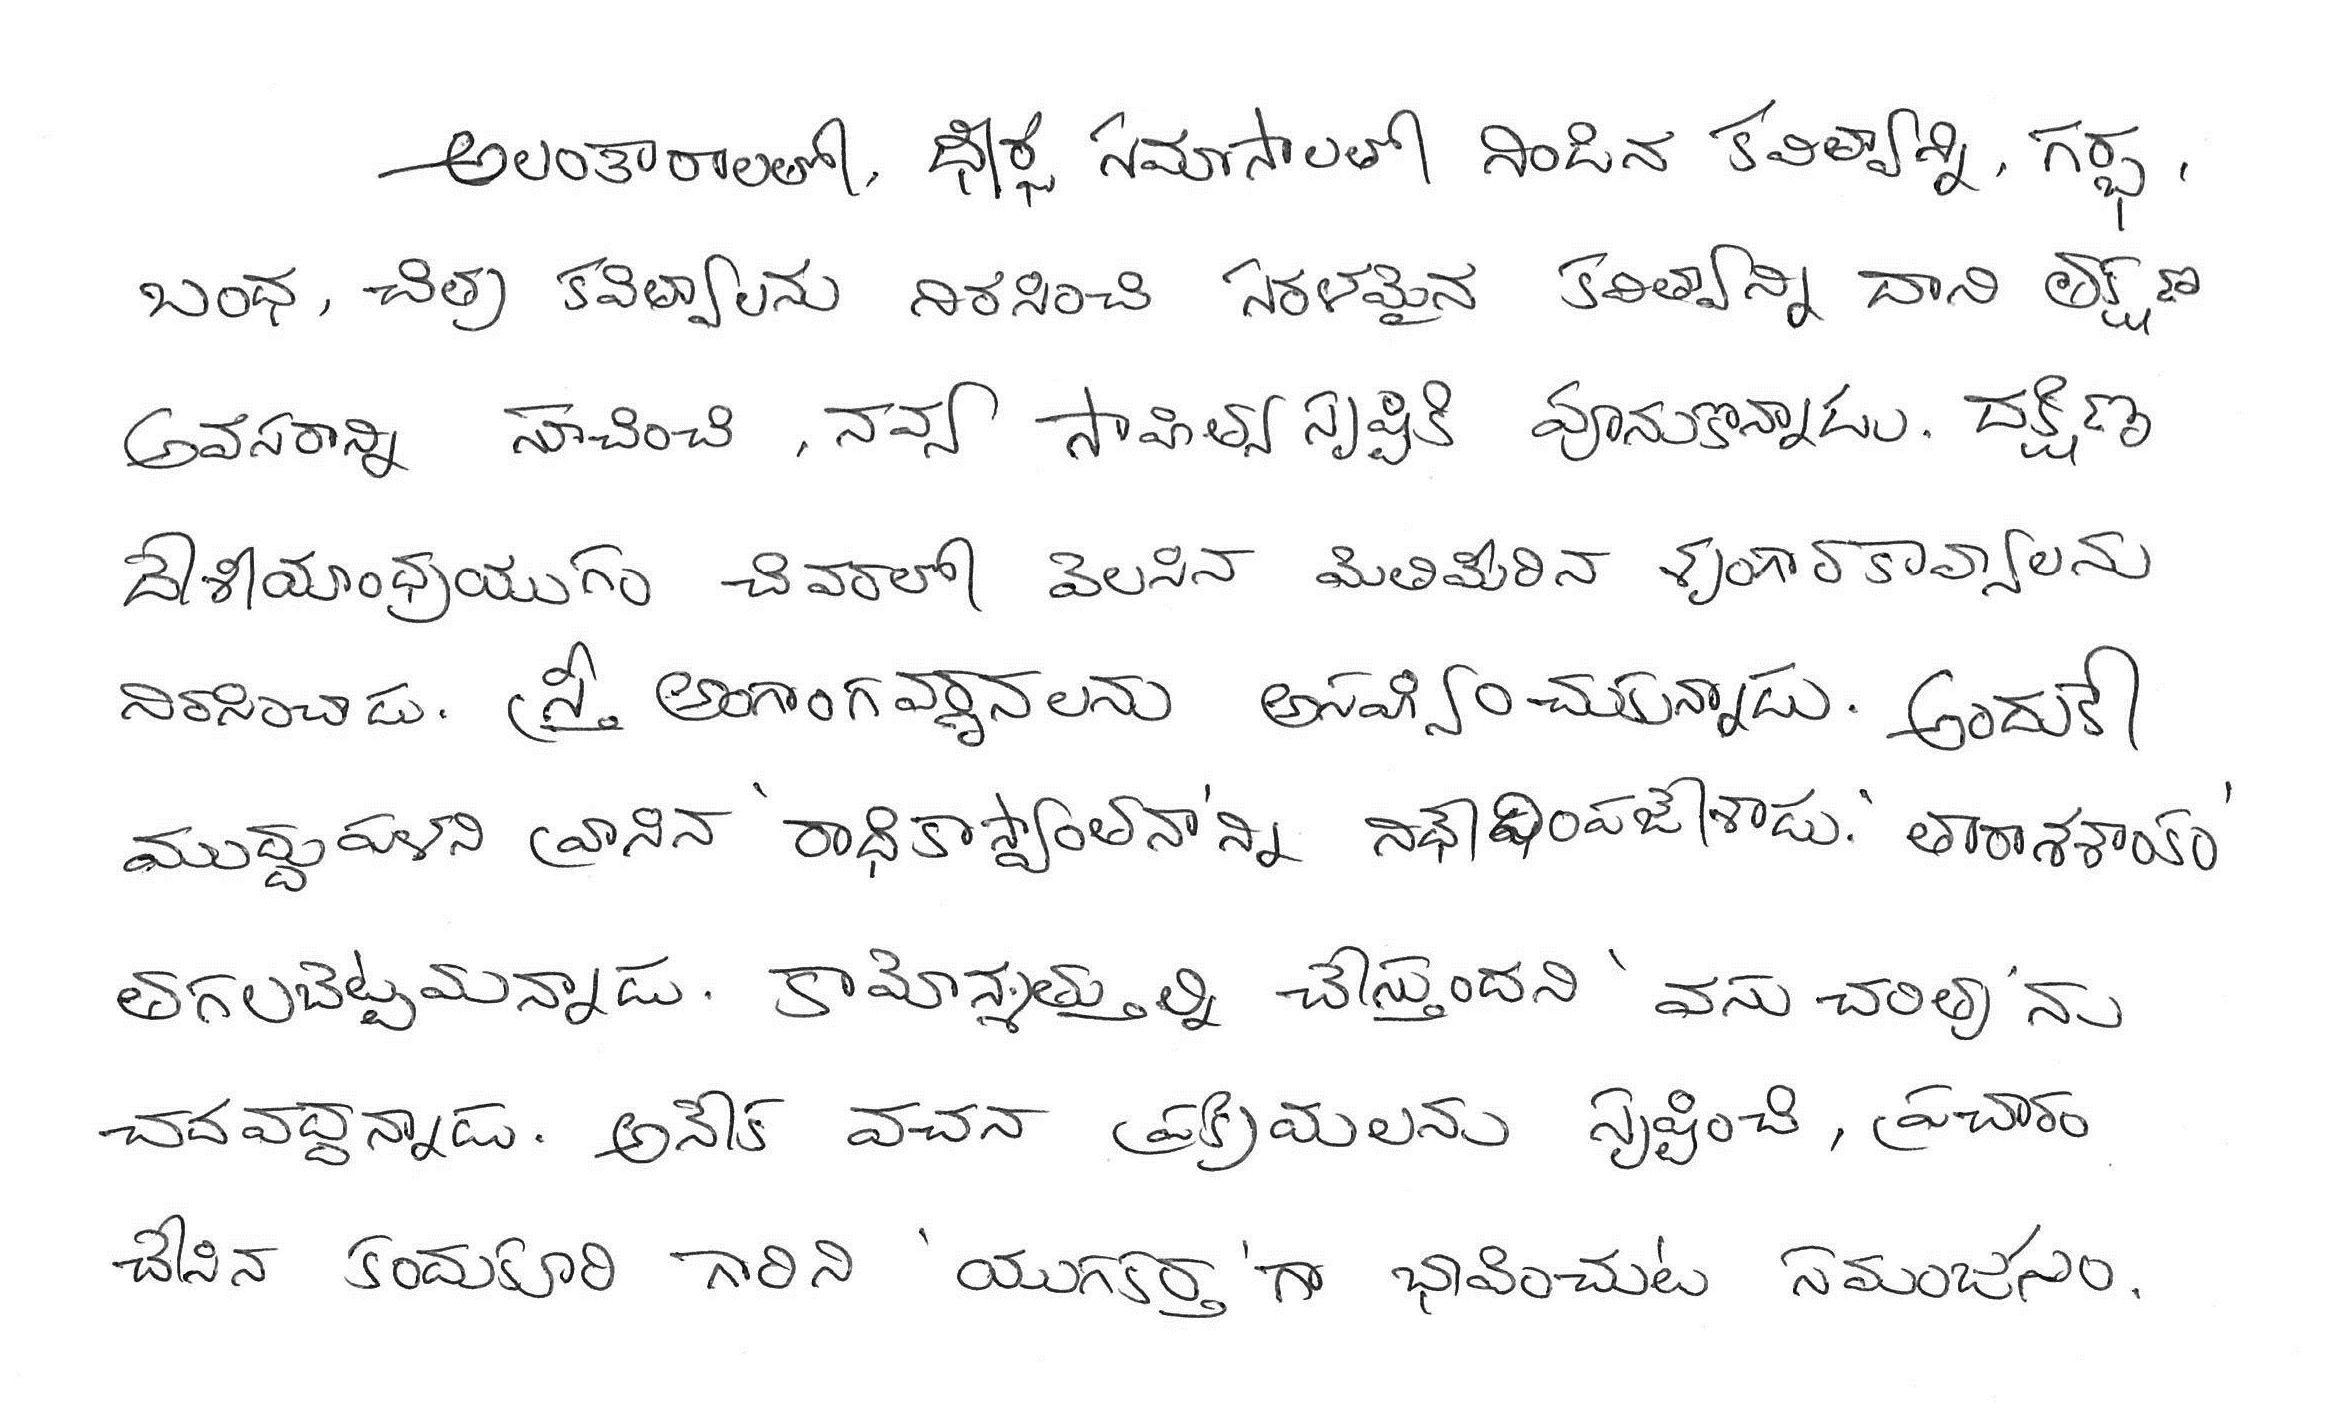 అలంకారాలతో, ధీర్ఘ సమాసాలతో నిండిన కవిత్వాన్ని, గర్భ,
బంధ, చిత్ర కవిత్వాలను నిరసించి సరళమైన కవిత్వాన్ని దాని త్క్షణ
అవసరాన్ని సూచించి, నవ్య సాహిత్య సృష్టికి పూనుకొన్నాడు. దక్షిణ
దేశీయాంధ్రయుగం చివరలో వెలసిన మితిమీరిన శృంగారకావ్యాలను
నిరసించాడు. స్త్రీ అంగాంగవర్ణనలను అసహ్యించుకున్నాడు. అందుకే
ముద్దుపళని వ్రాసిన 'రాధికాస్వాంతనా'న్ని నిషేధింపజేశాడు. 'తారాశశాంకం'
తగలబెట్టమన్నాడు. కామోన్మత్తుల్ని చేస్తుందని 'వసు చరిత్ర'ను
చదవద్దన్నాడు. అనేక వచన ప్రక్రియలను సృష్టించి, ప్రచారం
చేసిన కందుకూరి గారిని 'యుగకర్త'గా భావించుట సమంజసం.